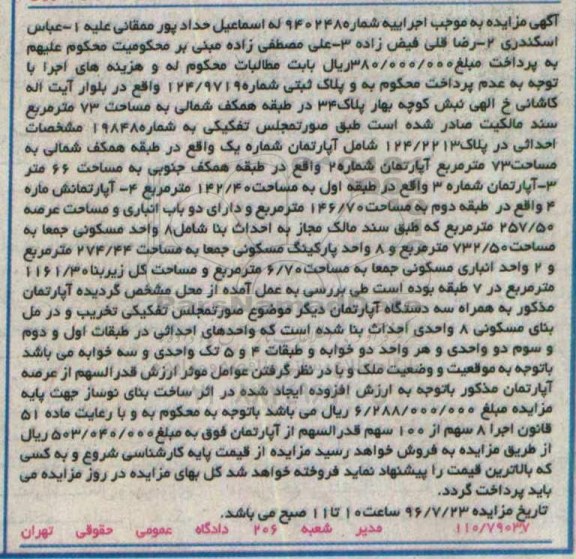 آگهی مزایده به موجب اجراییه شماره ۹۴۰۲۴۸ له اسماعیل حداد پور ممقانی علیه ۱-عباس
اسکندری ۲-رضا قلی فیض زاده ۳-علی مصطفی زاده مبنی بر محکومیت محکوم علیهم
به پرداخت مبلغ ۳۸۰/۰۰۰/۰۰۰ریال بابت مطالبات محکوم له و هزینه های اجرا با
توجه به عدم پرداخت محکوم به و پلاک ثبتی شماره۱۲۴/۹۷۱۹ واقع در بلوار آیت اله
کاشانی خ الهی نبش کوچه بهار پلاک۳۴ در طبقه همکف شمالی به مساحت ۷۳ مترمربع
سند مالکیت صادر شده است طبق صورتمجلس تفکیکی به شماره۱۹۸۴۸ مشخصات
احداثی در پلاک۱۲۴/۲۲۱۳ شامل آپارتمان شماره یک واقع در طبقه همکف شمالی به
مساحت۷۳ مترمربع آپارتمان شماره۲ واقع در طبقه همکف جنوبی به مساحت ۶۶ متر
۳-آپارتمان شماره ۳ واقع در طبقه اول به مساحت۱۴۲/۴۰ مترمربع ۴- آپارتمانش ماره
۴ واقع در طبقه دوم به مساحت۱۴۶/۷۰ مترمربع و دارای دو باب انباری و مساحت عرصه
۲۵۷/۵۰ مترمربع که طبق سند مالک مجاز به احداث بنا شامل۸ واحد مسکونی جمعا به
مساحت۷۳۲/۵۰ مترمربع و ۸ واحد پارکینگ مسکونی جمعا به مساحت ۲۷۴/۴۴ مترمربع
و ۲ واحد انباری مسکونی جمعا به مساحت۶/۷۰ مترمربع و مساحت کل زیربنا۱۱۶۱/۳۰
مترمربع در ۷ طبقه بوده است طی بررسی به عمل آمده از محل مشخص گردیده آپارتمان
مذکور به همراه سه دستگاه آپارتمان دیگر موضوع صورتمجلس تفکیکی تخریب و در مل
بنای مسکونی ۸ واحدی احداث بنا شده است که واحدهای احداثی در طبقات اول و دوم
و سوم دو واحدی و هر واحد دو خوابه و طبقات ۴ و ۵ تک واحدی و سه خوابه می باشد
باتوجه به موقعیت و وضعیت ملک و با در نظر گرفتن عوامل موثر ارزش قدرالسهم از عرصه
آپارتمان مذکور باتوجه به ارزش افزوده ایجاد شده در اثر ساخت بنای نوساز جهت پایه
مزایده مبلغ ۶/۲۸۸/۰۰۰/۰۰۰ ریال می باشد باتوجه به محکوم به و با رعایت ماده ۵۱
قانون اجرا ۸ سهم از ۱۰۰ سهم قدرالسهم از آپارتمان فوق به مبلغ۵۰۳/۰۴۰/۰۰۰ریال
از طریق مزایده به فروش خواهد رسید مزایده از قیمت پایه کارشناسی شروع و به کسی
که بالاترین قیمت را پیشنهاد نماید فروخته خواهد شد کل بهای مزایده در روز مزایده می
باید پرداخت گردد.
تاریخ مزایده ۹۶/۷/۲۳ ساعت۱۰ تا۱۱ صبح می باشد.
۱۱۰/۷۹۰۳۷ مدیر شعبه ۲۰۶ دادگاه عمومی حقوقی تهران